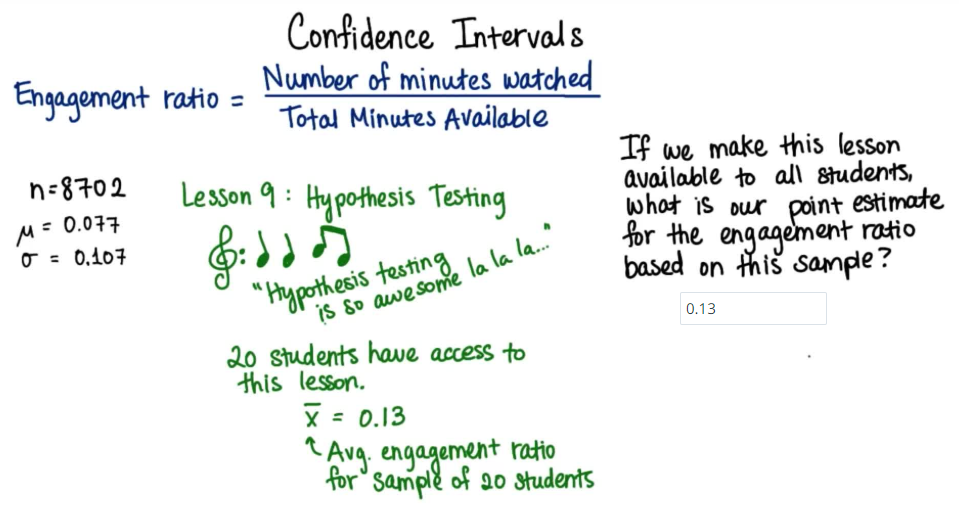 Confidence Intervals
Engagement ratio = Number of minutes watched
Total Minutes Available
n=8702
μ = 0.077
σ = 0.107
Lesson 9: Hypothesis Testing
"Hypothesis testing
is so awesome la la la..."
20 students have access to
this lesson.
x̅ = 0.13
↑ Avg. engagement ratio
for sample of 20 students
If we make this lesson
available to all students,
what is our point estimate
for the engagement ratio
based on this sample?
0.13